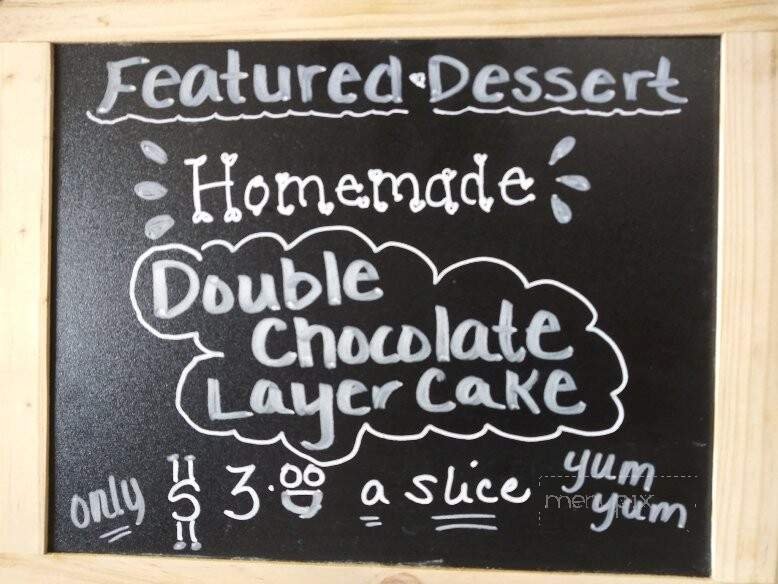 Featured Dessert
Homemade
Double
Chocolate
Layer Cake
only $3.00 a slice yum
yum
menupix